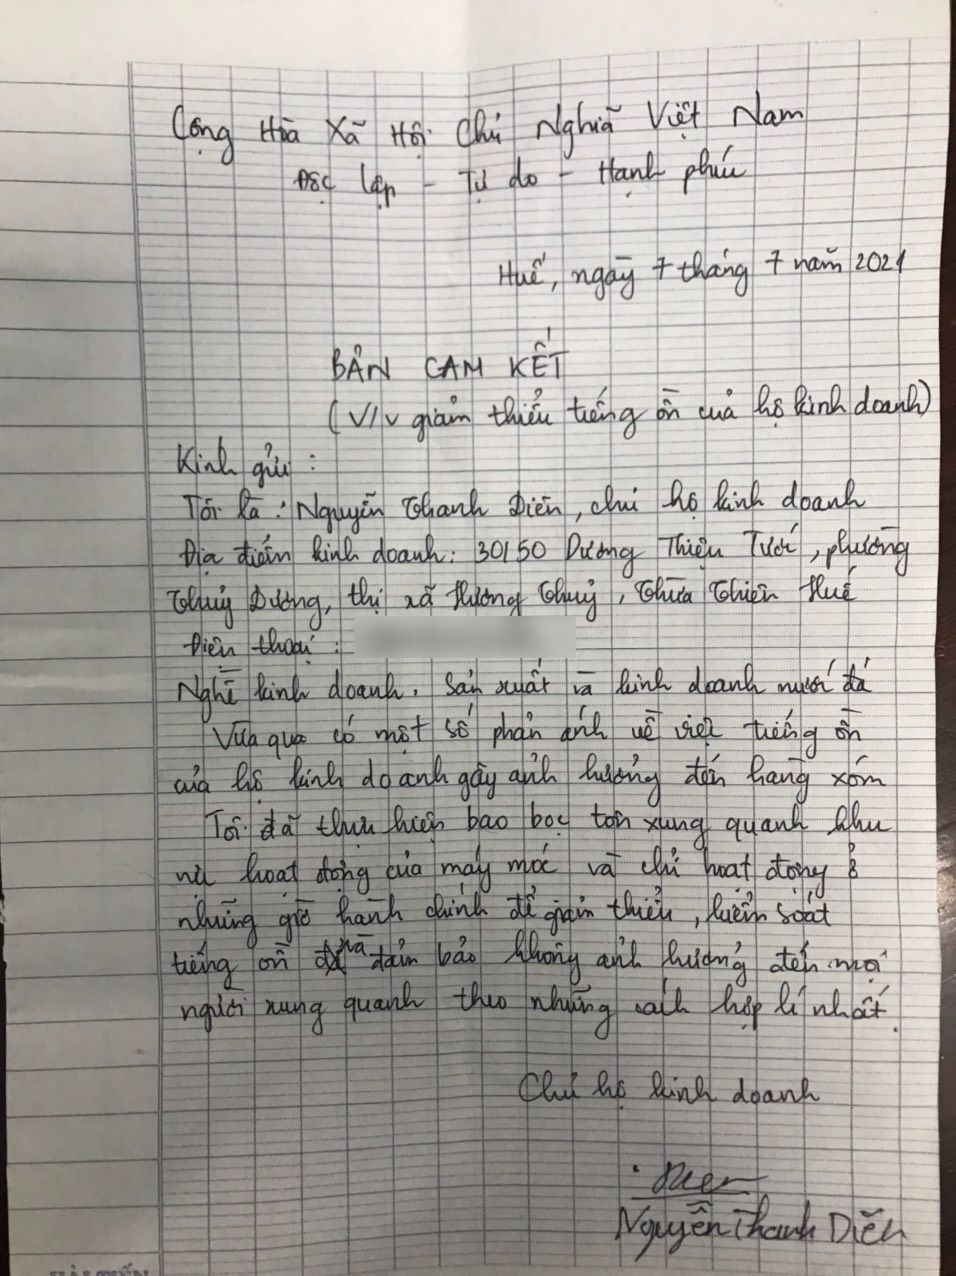 Cộng Hòa Xã Hội Chủ Nghĩa Việt Nam
Độc lập - Tự do - Hạnh phúc
Huế, ngày 7 tháng 7 năm 2021
BẢN CAM KẾT
(V/v giảm thiểu tiếng ồn của hộ kinh doanh)
Kính gửi :
Tôi là : Nguyễn Thanh Diễn, chủ hộ kinh doanh
Địa điểm kinh doanh: 30/50 Dương Thiệu Tước, phường
Thuỷ Dương, thị xã Hương Thuỷ, Thừa Thiên Huế
Điện thoại :
Nghề kinh doanh. Sản xuất và kinh doanh nước đá
Vừa qua có một số phản ánh về việc tiếng ồn
của hộ kinh doanh gây ảnh hưởng đến hàng xóm
Tôi đã thực hiện bao bọc tôn xung quanh khu
vực hoạt động của máy móc và chỉ hoạt động ở
những giờ hành chính để giảm thiểu, kiểm soát
tiếng ồn và đảm bảo không ảnh hưởng đến mọi
người xung quanh theo những cách hợp lí nhất.
Chủ hộ kinh doanh
Nguyễn Thanh Diễn